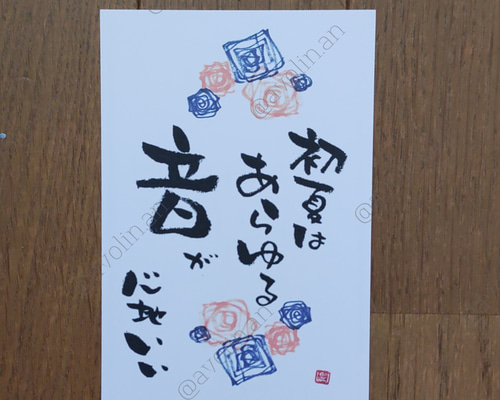 初夏は
あらゆる
音が
心地いい
@ayolin.an
@ayolin.an
@ayolin.an
@ayolin.an